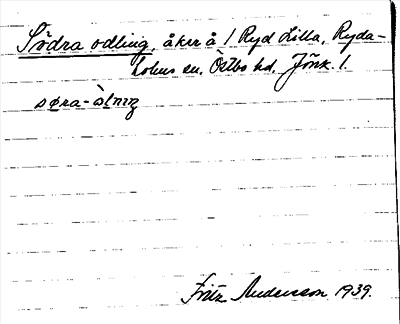 Södra odling, åker å 1 Ryd Lilla, Ryda-
holms sn, Östbo hd, Jönk. l.
Fritz Andersson 1939.